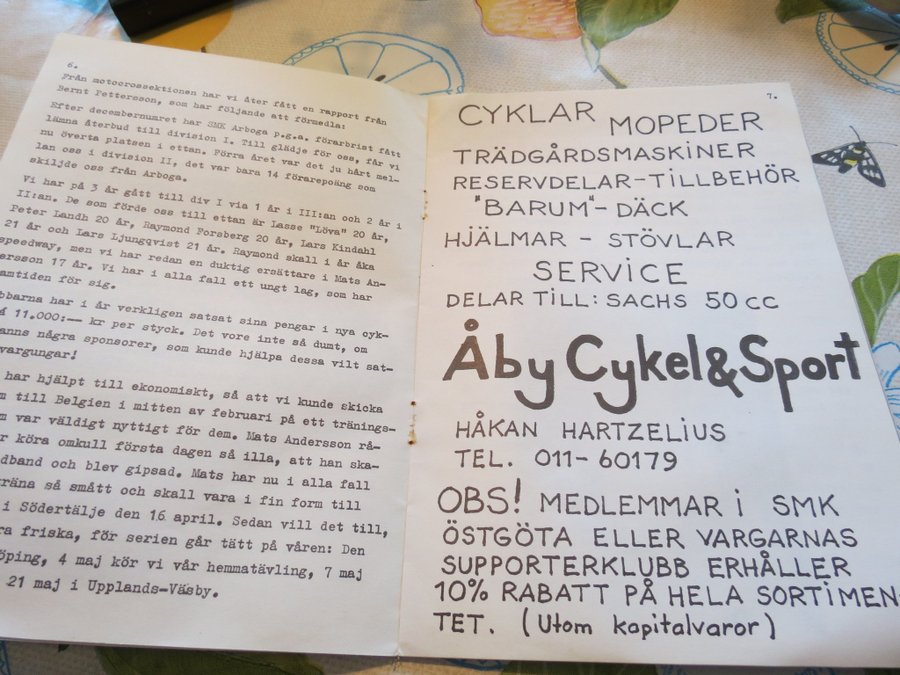 6.
Från motocrossektionen har vi åter fått en rapport från
Bernt Pettersson, som har följande att förmedla:
Efter decembernumret har SMK Arboga p.g.a. förarbrist fått
lämna återbud till division I. Till glädje för oss, får vi
nu överta platsen i ettan. Förra året var det ju hårt mel-
lan oss i division II, det var bara 14 förarepoäng som
skiljde oss från Arboga.
Vi har på 3 år gått till div I via 1 år i III:an och 2 år i
II:an. De som förde oss till ettan är Lasse "Löva" 20 år,
Peter Landh 20 år, Raymond Forsberg 20 år, Lars Kindahl
21 år och Lars Ljungqvist 21 år. Raymond skall i år åka
speedway, men vi har redan en duktig ersättare i Mats An-
ersson 17 år. Vi har i alla fall ett ungt lag, som har
amtiden för sig.
bbarna har i år verkligen satsat sina pengar i nya cyk-
å 11.000:-- kr per styck. Det vore inte så dumt, om
anns några sponsorer, som kunde hjälpa dessa vilt sat-
vargungar!
har hjälpt till ekonomiskt, så att vi kunde skicka
m till Belgien i mitten av februari på ett tränings-
m var väldigt nyttigt för dem. Mats Andersson rå-
r köra omkull första dagen så illa, att han ska-
dband och blev gipsad. Mats har nu i alla fall
räna så smått och skall vara i fin form till
i Södertälje den 16 april. Sedan vill det till,
ra friska, för serien går tätt på våren: Den
öping, 4 maj kör vi vår hemmatävling, 7 maj
21 maj i Upplands-Väsby.
7.
CYKLAR MOPEDER
TRÄDGÅRDSMASKINER
RESERVDELAR-TILLBEHÖR
"BARUM"-DÄCK
HJÄLMAR - STÖVLAR
SERVICE
DELAR TILL: SACHS 50 cc
Åby Cykel&Sport
HÅKAN HARTZELIUS
TEL. 011-60179
OBS! MEDLEMMAR i SMK
ÖSTGÖTA ELLER VARGARNAS
SUPPORTERKLUBB ERHÅLLER
10% RABATT PÅ HELA SORTIMEN-
TET. (Utom kapitalvaror)